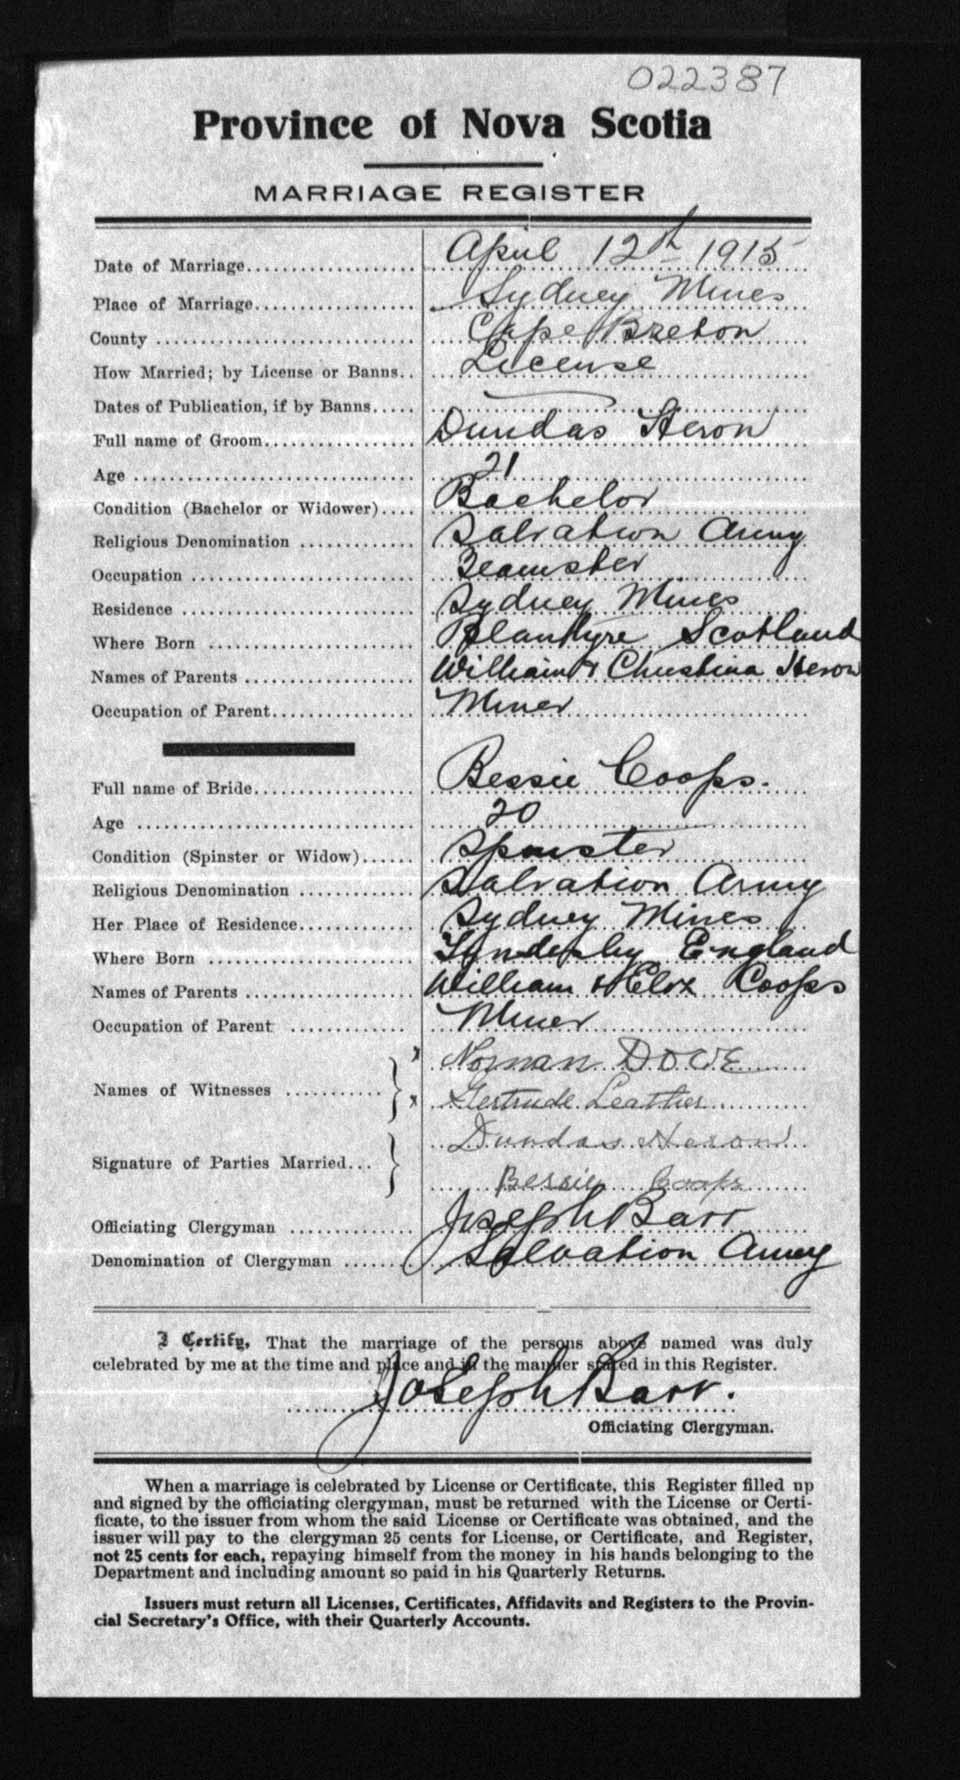 022387
Province of Nova Scotia
MARRIAGE REGISTER
Date of Marriage.................... April 12th 1915
Place of Marriage................... Sydney Mines
County .............................. Cape Breton
How Married; by License or Banns.. License
Dates of Publication, if by Banns.....
Full name of Groom.................. Dundas Heron
Age ................................. 21
Condition (Bachelor or Widower).... Bachelor
Religious Denomination ............. Salvation Army
Occupation .......................... Teamster
Residence ........................... Sydney Mines
Where Born ......................... Blantyre Scotland
Names of Parents .................... William & Christina Heron
Occupation of Parent................. Miner
Full name of Bride................... Bessie Coops.
Age ................................. 20
Condition (Spinster or Widow)...... Spinster
Religious Denomination ............. Salvation Army
Her Place of Residence............. Sydney Mines
Where Born ......................... England
Names of Parents .................... William & Coops
Occupation of Parent ............. Miner
Names of Witnesses ........... x Norman DOVE
x Gertrude Leather
Signature of Parties Married... Dundas Heron
Bessie Coops
Officiating Clergyman .............. Joseph Barr
Denomination of Clergyman ....... Salvation Army
I Certify, That the marriage of the persons above named was duly
celebrated by me at the time and place and in the manner stated in this Register.
Joseph Barr.
Officiating Clergyman.
When a marriage is celebrated by License or Certificate, this Register filled up
and signed by the officiating clergyman, must be returned with the License or Certi-
ficate, to the issuer from whom the said License or Certificate was obtained, and the
issuer will pay to the clergyman 25 cents for License, or Certificate, and Register,
not 25 cents for each, repaying himself from the money in his hands belonging to the
Department and including amount so paid in his Quarterly Returns.
Issuers must return all Licenses, Certificates, Affidavits and Registers to the Provin-
cial Secretary's Office, with their Quarterly Accounts.